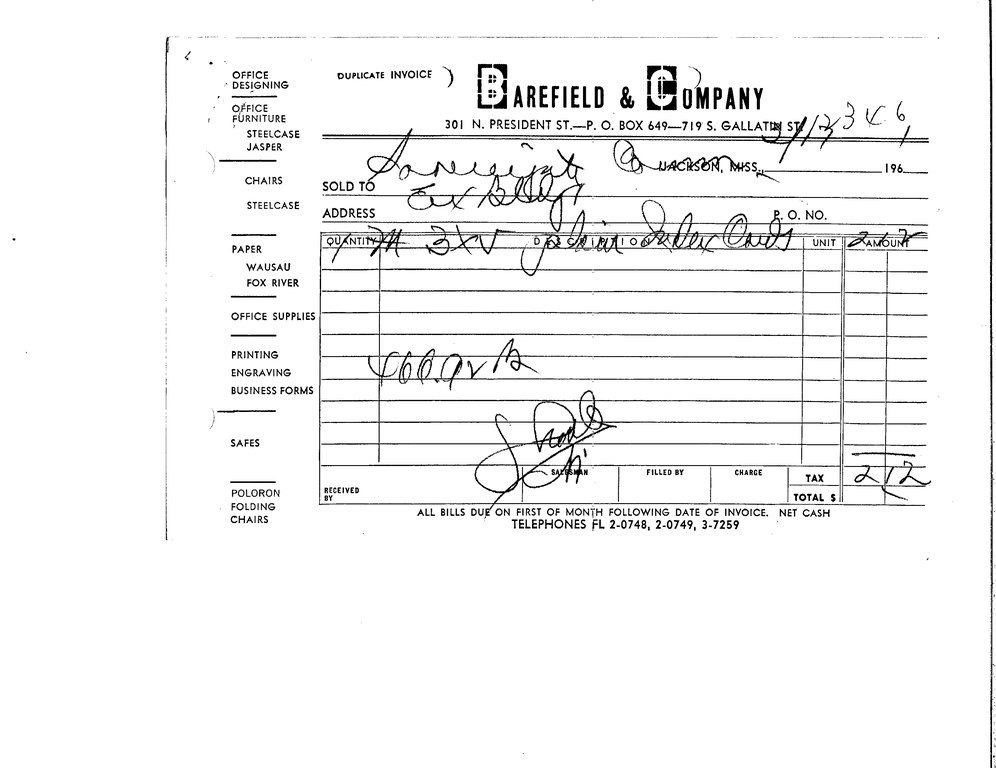 OFFICE
DESIGNING
OFFICE
FURNITURE
STEELCASE
JASPER
CHAIRS
STEELCASE
PAPER
WAUSAU
FOX RIVER
OFFICE SUPPLIES
PRINTING
ENGRAVING
BUSINESS FORMS
SAFES
POLORON
FOLDING
CHAIRS
DUPLICATE INVOICE
BAREFIELD & COMPANY
301 N. PRESIDENT ST.—P. O. BOX 649—719 S. GALLATIN ST.
346
JACKSON, MISS., 196
SOLD TO Sovereignty
ADDRESS P. O. NO.
QUANTITY DESCRIPTION UNIT AMOUNT
1 M 3x5 plain Index Cards 2 12
SALESMAN FILLED BY CHARGE TAX 2 12
RECEIVED
BY TOTAL $
ALL BILLS DUE ON FIRST OF MONTH FOLLOWING DATE OF INVOICE. NET CASH
TELEPHONES FL 2-0748, 2-0749, 3-7259